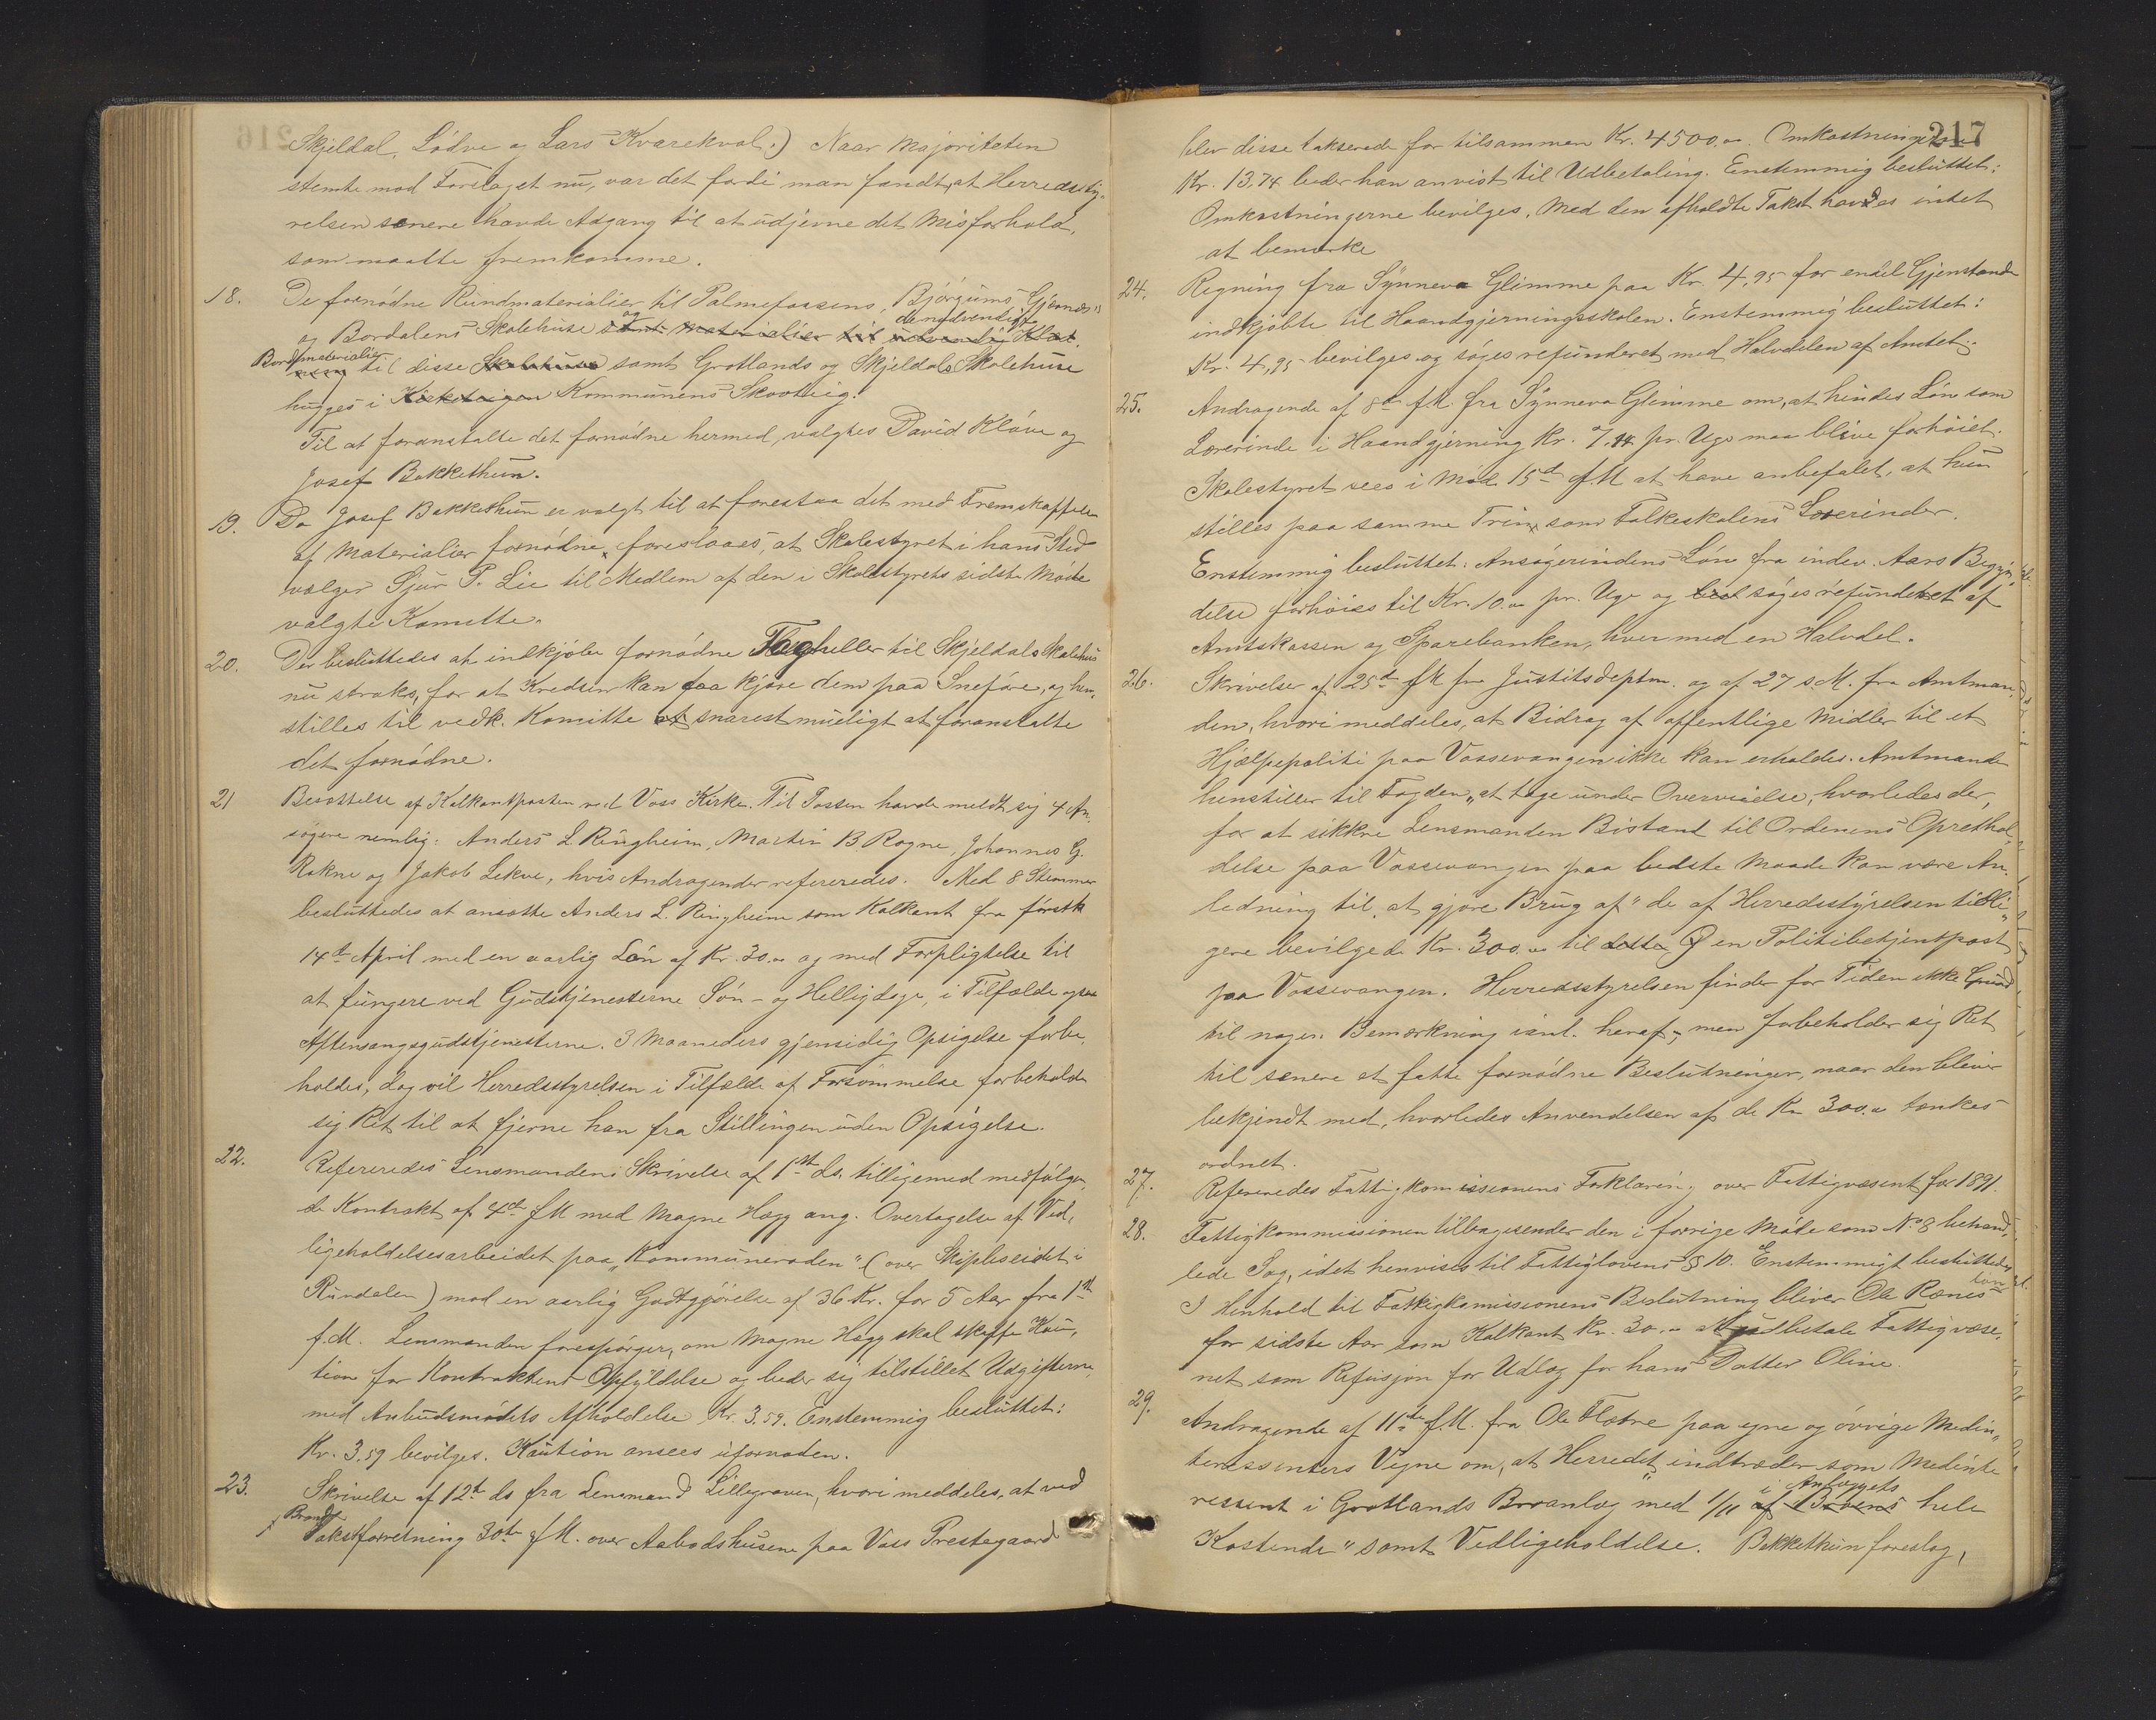 Skjeldal, Lødve og Lars Kvarekval.) Naar Majoriteten
stemte mod Forslaget nu, var det fordi man fandt, at Herredssty-
relsen senere havde Adgang til at udjevne det Misforhold,
som maatte fremkomme.
18. De fornødne Rundmaterialier til Palmefossens, Bjørgums, Gjernæs
og Bordalens Skolehuse samt og Materialier til udvendig de nødvendige Klæd-
ning Bordmaterialier til disse Skolehuse samt Grotlands og Skjeldals Skolehuse
hugges i Kommunens Skovteig.
Til at foranstalte det fornødne hermed, valgtes David Kløve og
Josef Bakkethun.
19. Da Josef Bakkethun er valgt til at forestaa det med Fremskaffelse
af Materialier fornødne, foreslaaes, at Skolestyret i hans Sted
vælger Sjur P. Lie til Medlem af den i Skolestyrets sidste Møde
valgte Komitte.
20. Der besluttedes at indkjøbe fornødne Tagheller til Skjeldals Skolehus
nu straks, for at Kredsen kan faa kjøre dem paa Sneføre, og hen-
stilles til vedk. Komitte at snarest mueligt at foranstalte
det fornødne.
21 Besættelse af Kalkantposten ved Voss Kirke. Til Posten havde meldt sig 4 An-
søgere nemlig: Anders L Ringheim, Martin B. Rogne, Johannes G.
Rokne og Jakob Lekve, hvis Andragender refereredes. Med 8 Stemmer
besluttedes at ansætte Anders L. Ringheim som Kalkant fra førstk
14de April med en aarlig Løn af Kr. 30.00 og med Forpligtelse til
at fungere ved Gudstjenesterne Søn- og Helligdage, i Tilfælde ogsaa
Aftensangsgudstjenesterne. 3 Maaneders gjensidig Opsigelse forbe-
holdes, dog vil Herredsstyrelsen i Tilfælde af Forsømmelse forbeholde
sig Ret til at fjerne han fra Stillingen uden Opsigelse.
22. Refereredes Lensmandens Skrivelse af 1ste ds. tilligemed medfølgen-
de Kontrakt af 4de f M med Magne Hægg ang. Overtagelse af Ved-
ligeholdelsesarbeidet paa "Kommuneroden" (over Skipleseidet i
Rundalen) mod en aarlig Godtgjørelse af 36 Kr. for 5 Aar fra 1ste
f. M. Lensmanden forespørger, om Magne Hægg skal skaffe Kau-
tion for Kontraktens Opfyldelse og beder sig tilstillet Udgifterne
med Anbudsmødets Afholdelse Kr. 3.59. Enstemmig besluttet:
Kr. 3.59 bevilges. Kaution ansees ufornøden.
23. Skrivelse af 12te ds fra Lensmand Lillegraven, hvori meddeles, at ved
Brand Takstforretning 30te f M. over Aabodshusene paa Voss Prestegaard
217
blev disse takserede for tilsammen Kr. 4500.00. Omkostningerne
Kr. 13.74 beder han anvist til Udbetaling. Enstemmig besluttet:
Omkostningerne bevilges. Mod den afholdte Takst havdes intet
at bemærke
24. Regning fra Synneva Glimme paa Kr. 4,95 for endel Gjenstande
indkjøbte til Haandgjerningsskolen. Enstemmig besluttet:
Kr. 4,95 bevilges og søges refunderet med Halvdelen af Amtet.
25. Andragende af 8de f M. fra Synneva Glimme om, at hendes Løn som
Lærerinde i Haandgjerning Kr. 7.14 pr. Uge maa blive forhøiet.
Skolestyret sees i Møde 15de f M at have anbefalet, at hun
stilles paa samme Trin som Folkeskolens Lærerinder.
Enstemmig besluttet: Ansøgerindens Løn fra indev. Aars Begyn-
delse forhøies til Kr. 10.00 pr. Uge og søges refunderet af
Amtskassen og Sparebanken, hver med en Halvdel.
26. Skrivelser af 25de f M fra Justitsdeptm. og af 27 s. M. fra Amtman-
den, hvori meddeles, at Bidrag af offentlige Midler til et
Hjælpepoliti paa Vossevangen ikke kan erholdes. Amtmanden
henstiller til Fogden "at tage under Overveielse, hvorledes der,
for at sikkre Lensmanden Bistand til Ordenens Oprethol-
delse paa Vossevangen paa bedste Maade kan være An-
ledning til at gjøre Brug af" de af Herredsstyrelsen tidli-
gere bevilgede Kr. 300.00 til dette en Politibetjentpost
paa Vossevangen. Herredsstyrelsen finder for Tiden ikke Grund
til nogen Bemærkning i anl. heraf, men forbeholder sig Ret
til senere at fatte fornødne Beslutninger, naar den bliver
bekjendt med, hvorledes Anvendelsen af de Kr 300.00 tænkes
ordnet.
27. Refereredes Fattigkommissionens Forklaring over Fattigvæsenet for 1891.
28. Fattigkommissionen tilbagesender den i forrige Møde som No 8 behand-
lede Sag, idet henvises til Fattiglovens § 10. Enstemmigt besluttedes
I Henhold til Fattigkomissionens Beslutning bliver Ole Rænes Løn
for sidste Aar som Kalkant Kr. 30.00 at udbetale Fattigvæse-
net som Refusjon for Udlæg for hans Datter Oline.
29. Andragende af 11te f. M. fra Ole Flatre paa egne og øvrige Medin-
teressenters Vegne om, at Herredet "indtræder som Medinte-
ressent i Grotlands Broanlæg med 1/11 af Broens i Anlæggets hele
Kostende" samt Vedligeholdelse. Bakkethun foreslog,